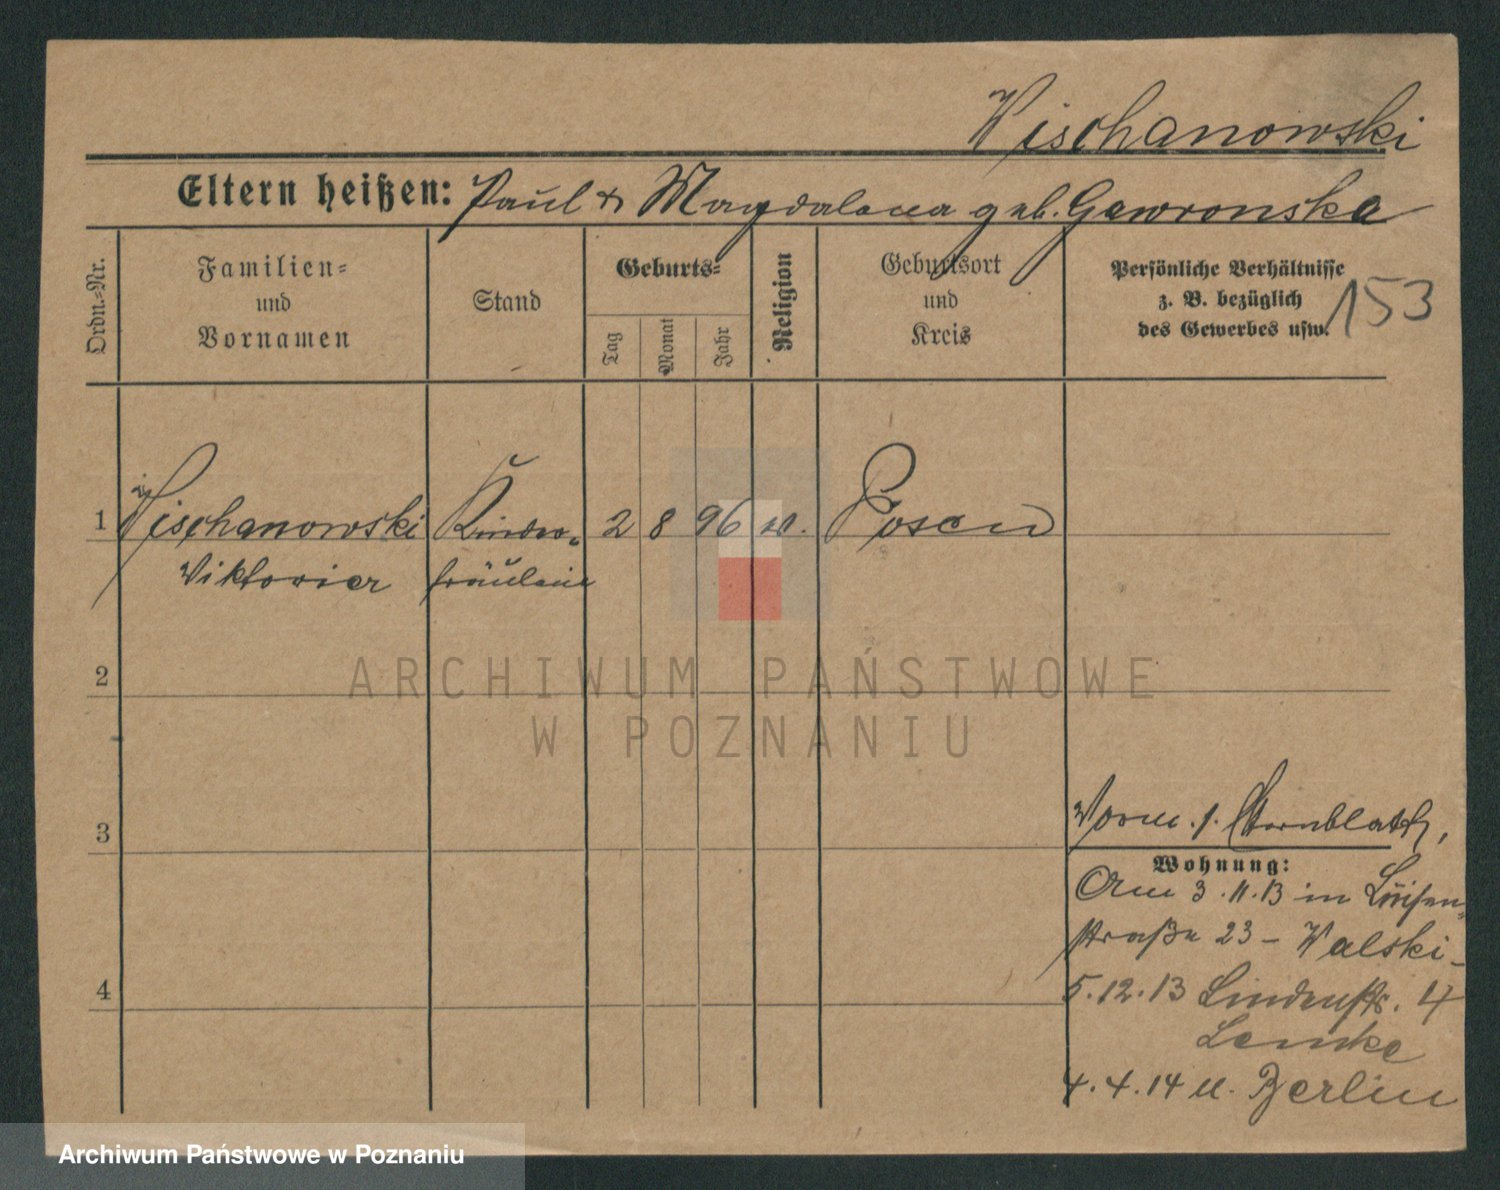 Wischanowski
Eltern heißen: Paul & Magdalena geb. Gawronska
Ordn.=Nr.
Familien=
und
Vornamen
Stand
Geburts=
Tag
Monat
Jahr
Religion
Geburtsort
und
Kreis
Persönliche Verhältnisse
z. B. bezüglich
des Gewerbes usw.
153
1 Wischanowski Kinder- 2 8 96 Posen
Viktorier fräulein
2
ARCHIWUM PAŃSTWOWE
W POZNANIU
3
4
Wohnung:
Am 3.11.13 in Luisen-
straße 23 – Walski –
5.12.13 Lindenstr. 4
Lemke
4.4.14 u. Berlin
Archiwum Państwowe w Poznaniu